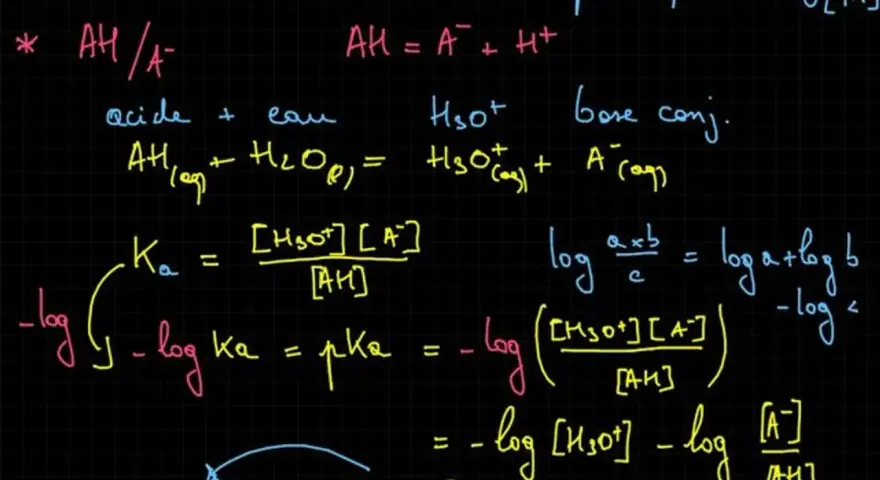 * AH/A⁻ AH = A⁻ + H⁺
acide + eau H₃O⁺ base conj.
AH(aq) + H₂O(l) = H₃O⁺(aq) + A⁻(aq)
Ka = [H₃O⁺][A⁻] / [AH] log a×b / c = log a + log b
-log - log c
-log Ka = pKa = -log ([H₃O⁺][A⁻] / [AH])
= -log [H₃O⁺] - log [A⁻] / [AH]